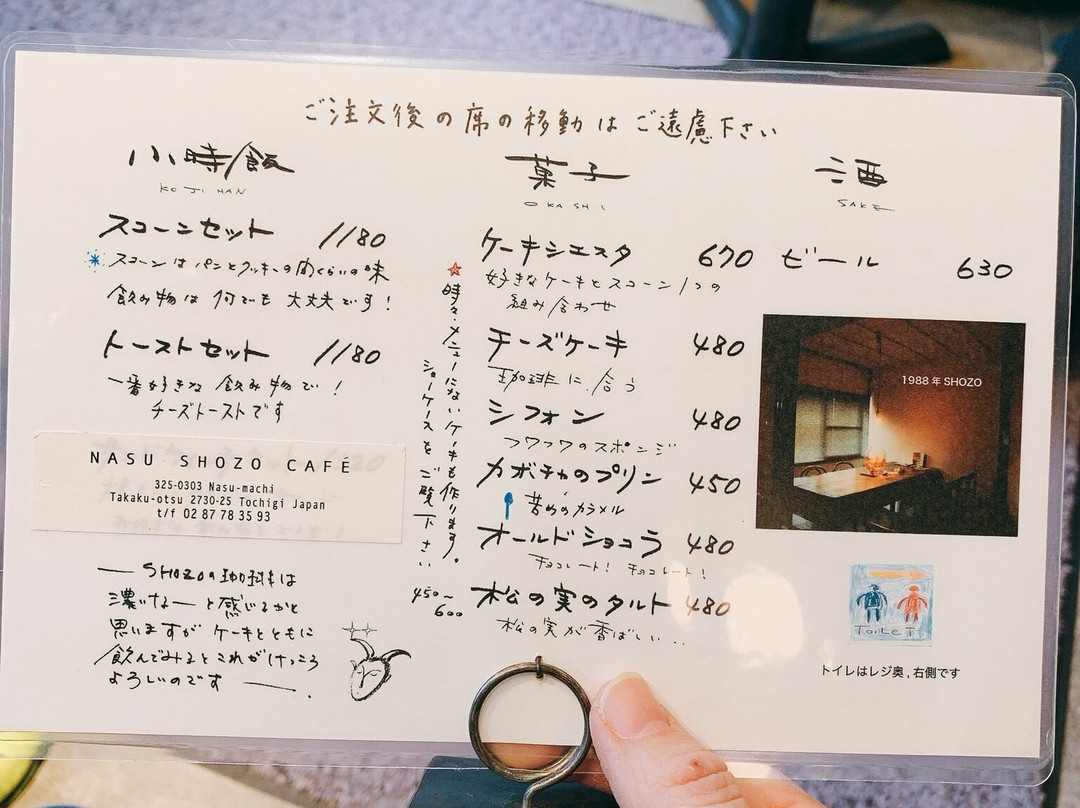 ご注文後の席の移動はご遠慮下さい
小時飯
KOJIHAN
スコーンセット 1180
スコーンはパンとクッキーの間くらいの味
飲み物は何でも大丈夫です！
トーストセット 1180
一番好きな飲み物で！
チーズトーストです
NASU SHOZO CAFÉ
325-0303 Nasu-machi
Takaku-otsu 2730-25 Tochigi Japan
t/f 02 87 78 35 93
― SHOZOの珈琲は
濃いなーと感じるかと
思いますがケーキとともに
飲んでみるとこれがけっこう
よろしいのです ―.
時々、メニューにないケーキも作ります。
ショーケースをご覧下さい
450～
600
菓子
OKASHI
ケーキシエスタ 670
好きなケーキとスコーン1つの
組み合わせ
チーズケーキ 480
珈琲に合う
シフォン 480
フワフワのスポンジ
カボチャのプリン 450
苦めのカラメル
オールドショコラ 480
チョコレート！ チョコレート！
松の実のタルト 480
松の実が香ばしい...
酒
SAKE
ビール 630
1988年SHOZO
ToiLeT
トイレはレジ奥,右側です